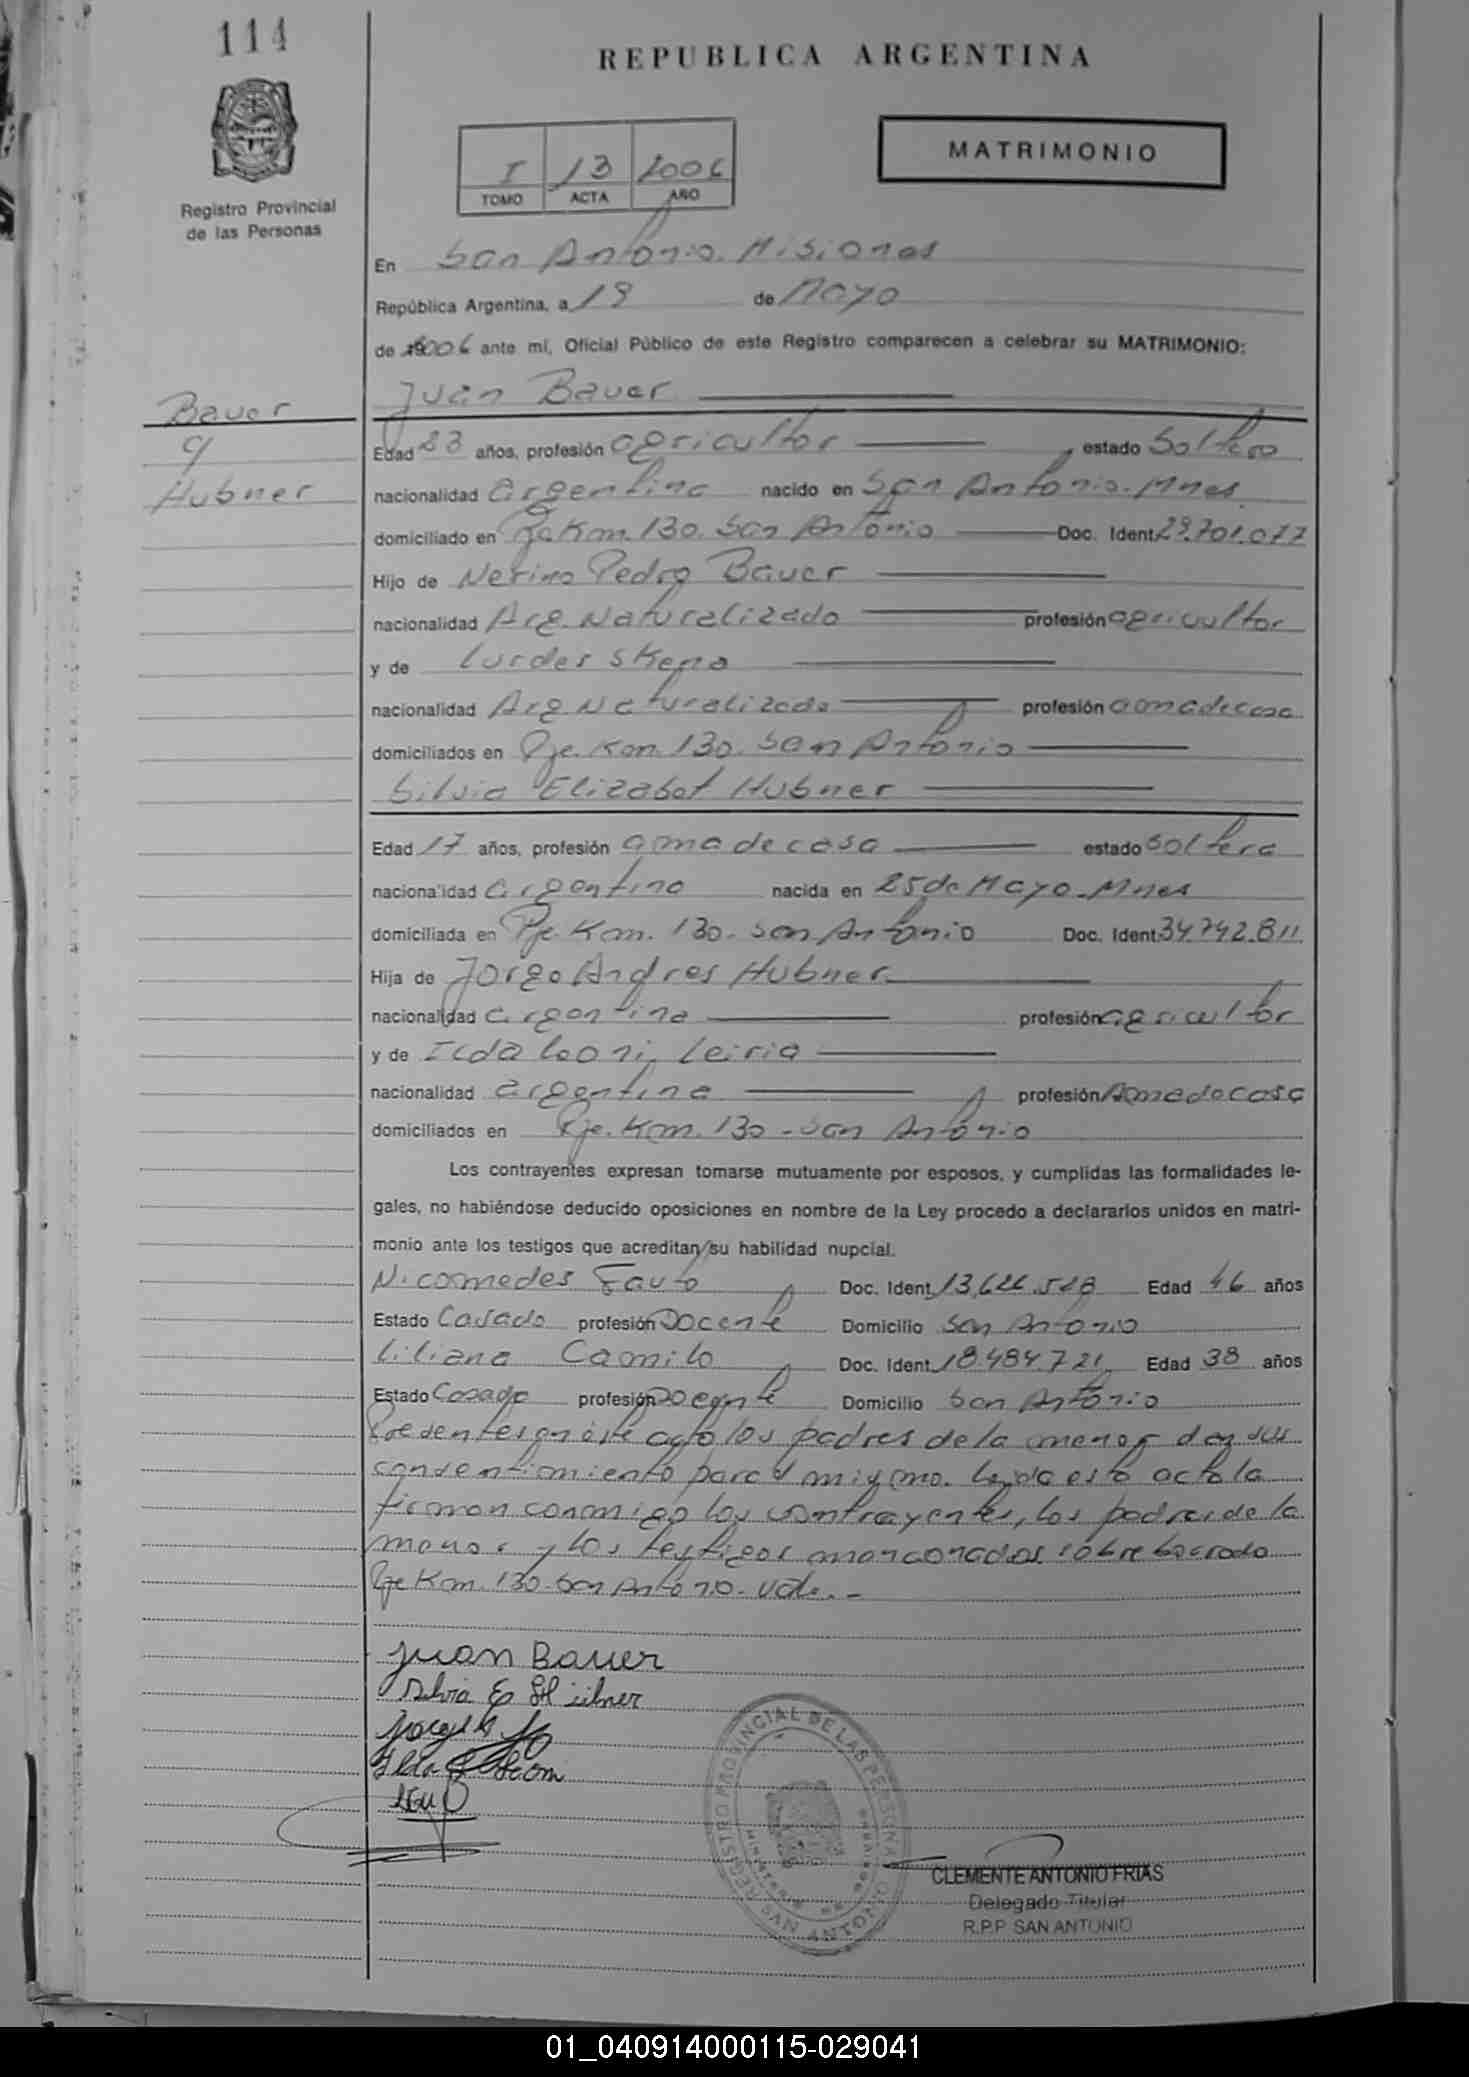 114
REPUBLICA ARGENTINA
MATRIMONIO
I 13 2006
TOMO ACTA AÑO
Registro Provincial
de las Personas
En San Antonio. Misiones
República Argentina, a 19 de Mayo
de 2006 ante mí, Oficial Público de este Registro comparecen a celebrar su MATRIMONIO:
Bauer
y
Hubner
Juan Bauer
Edad 23 años, profesión agricultor estado Soltero
nacionalidad argentina nacido en San Antonio. Mnes
domiciliado en Pje Km. 130. San Antonio Doc. Ident. 29.701.077
Hijo de Nerino Pedro Bauer
nacionalidad Arg. Naturalizado profesión agricultor
y de Lurdes Skepa
nacionalidad Arg Naturalizada profesión amadecasa
domiciliados en Pje. Km. 130. San Antonio
Silvia Elizabet Hubner
Edad 17 años, profesión ama de casa estado Soltera
nacionalidad argentina nacida en 25 de Mayo - Mnes
domiciliada en Pje. Km. 130 - San Antonio Doc. Ident. 34.742.811
Hija de Jorge Andres Hubner
nacionalidad argentina profesión agricultor
y de Ilda Leoni Leiria
nacionalidad argentina profesión Amadecasa
domiciliados en Pje. Km. 130 - San Antonio
Los contrayentes expresan tomarse mutuamente por esposos, y cumplidas las formalidades le-
gales, no habiéndose deducido oposiciones en nombre de la Ley procedo a declararlos unidos en matri-
monio ante los testigos que acreditan su habilidad nupcial.
Nicomedes Fauto Doc. Ident. 13.626.528 Edad 46 años
Estado Casado profesión Docente Domicilio San Antonio
Liliana Camilo Doc. Ident. 18.484.721 Edad 38 años
Estado Casada profesión Docente Domicilio San Antonio
Presentes en este acto los padres de la menor dan sus
consentimiento para el mismo. Leida esta acta la
firman conmigo los contrayentes, los padres de la
menor y los testigos mencionados sobre borrado
Pje Km. 130 - San Antonio - Vale. -
Juan Bauer
Silvia E Hübner
Ilda Leoni
REGISTRO PROVINCIAL DE LAS PERSONAS
SAN ANTONIO
CLEMENTE ANTONIO FRIAS
Delegado Titular
R.P.P SAN ANTONIO
01_040914000115-029041